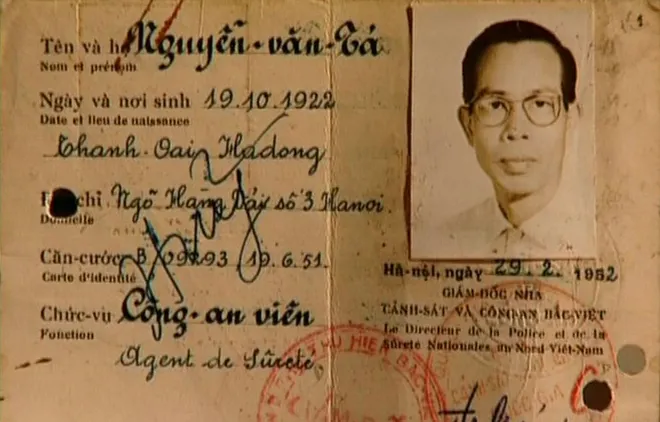 Tên và họ Nguyễn-văn-Tá
Nom et prénom
Ngày và nơi sinh 19.10.1922
Date et lieu de naissance
Thanh-Oai, Hadong
chỉ Ngõ Hàng Dây số 3 Hanoi.
Domicile
Căn-cước B 19.6.51.
Carte d'identité
Chức-vụ Công-an viên
Fonction
Agent de Sûreté.
1
Hà-nội, ngày 29.2.1952
GIÁM-ĐỐC NHA
CẢNH-SÁT VÀ CÔNG-AN BẮC-VIỆT
Le Directeur de la Police et de la
Sûreté Nationales du Nord Viêt-Nam